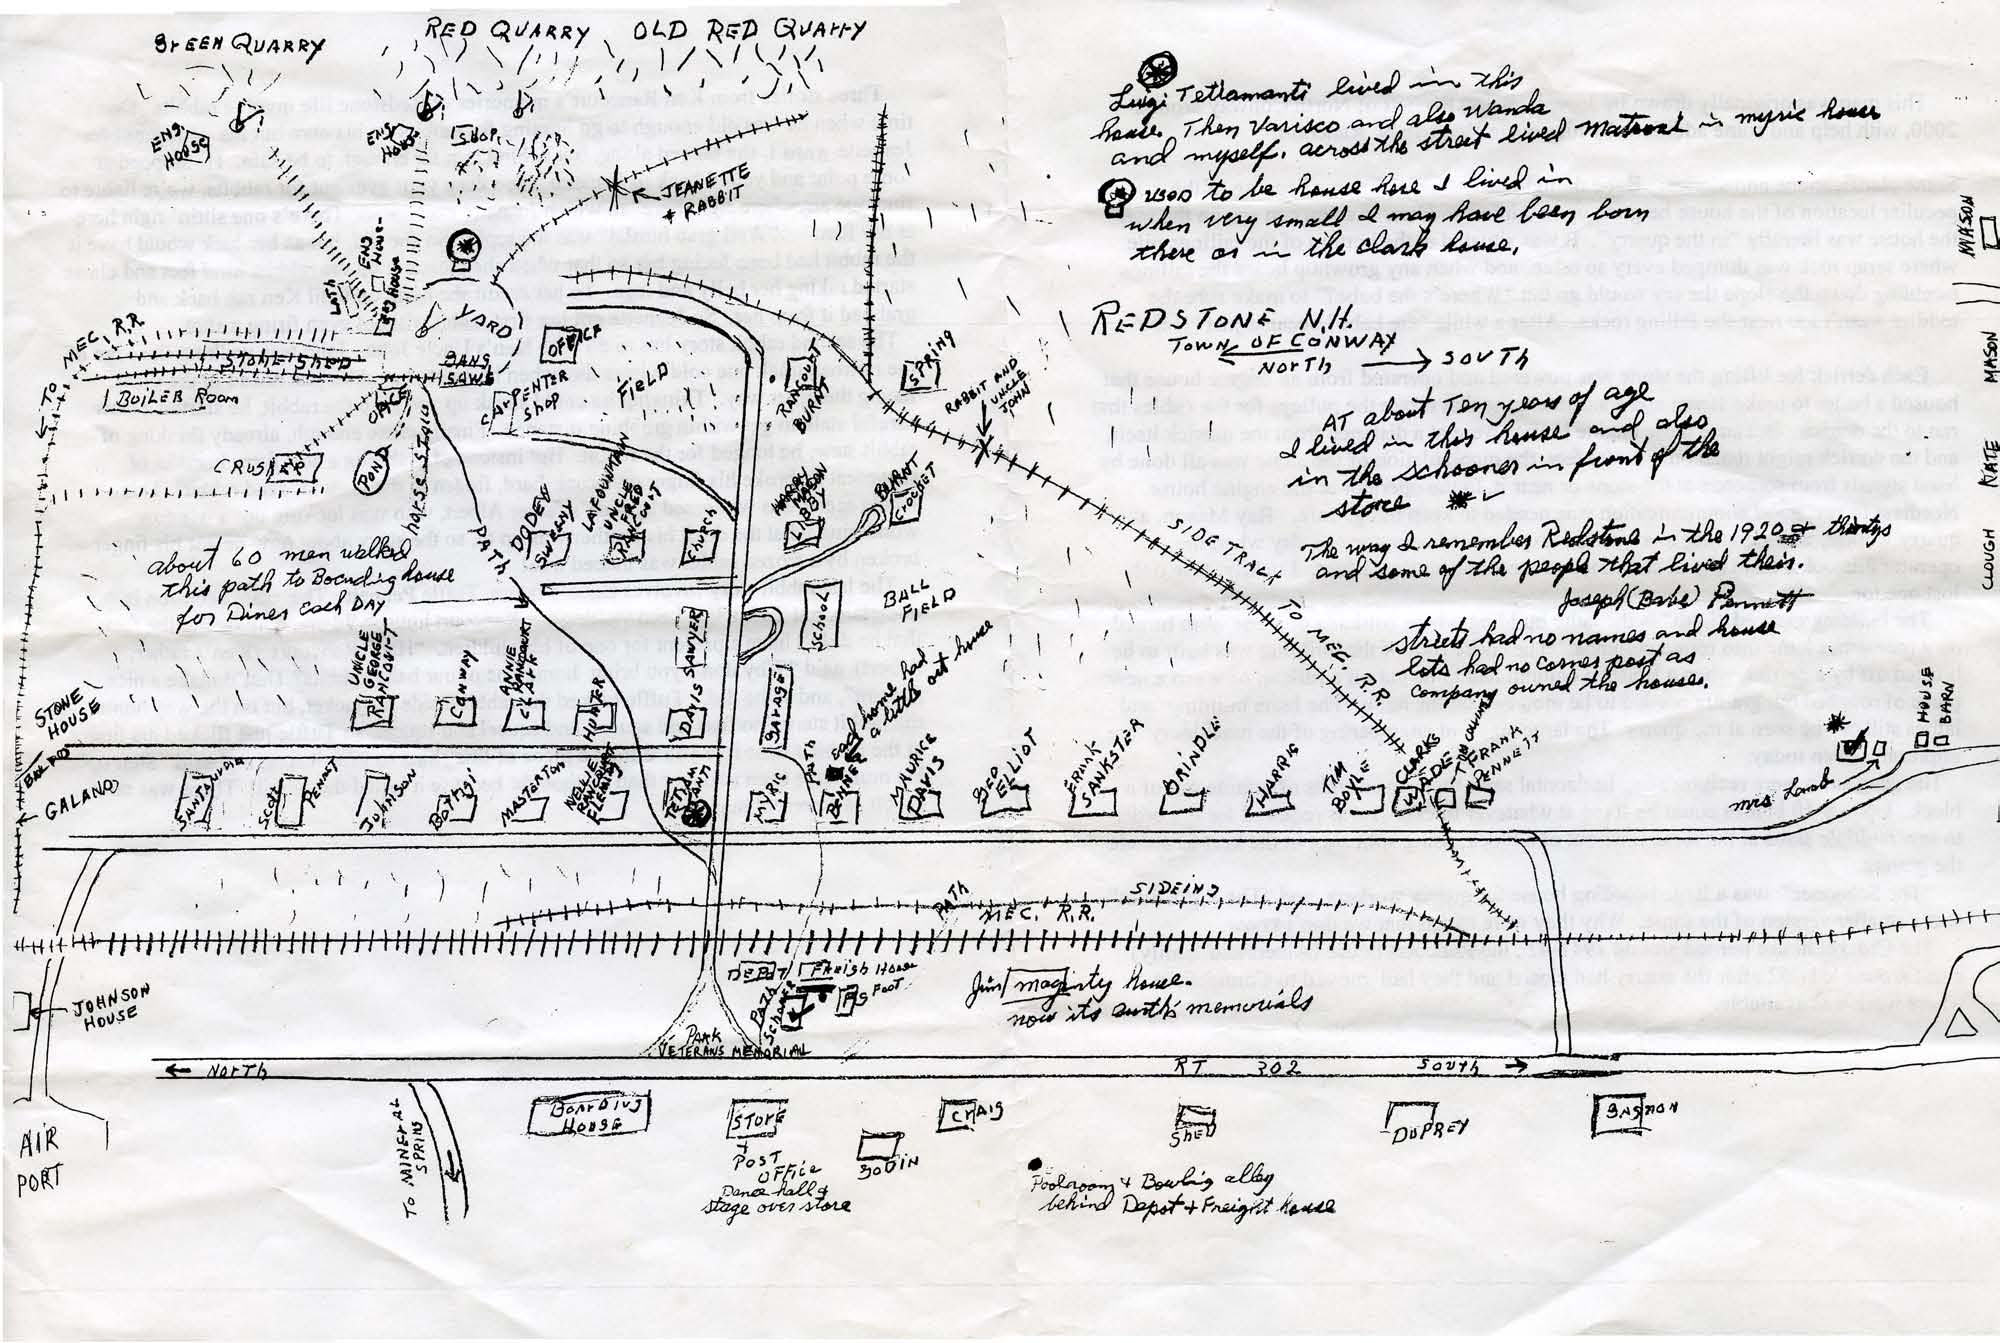 GREEN QUARRY
RED QUARRY
OLD RED QUARRY
ENG. HOUSE
ENG HOUSE
SHOP
JEANETTE + RABBIT
ENG HOUSE
ENG HOUSE
YARD
TO MEC. R.R
STONE SHED
BOILER ROOM
GANG SAWS
OFFICE
CARPENTER SHOP
FIELD
RANCOURT BURNT
SPRING
RABBIT AND UNCLE JOHN
CRUSHER
POND
HORSE STABLE
PATH
DODEY SWEENY
LAFOUNTAIN
UNCLE FRED RANCOURT
CHURCH
HARRY MASON
L BOY
BURNT CROCKET
about 60 men walked
this path to Boarding house
for Diner Each DAY
SIDE TRACK TO MEC. R.R.
SCHOOL
BALL FIELD
UNCLE GEORGE RANCOURT
CONWAY
ANNIE RANCOURT CLARK
HUNTER
DAVIS
SAWYER
GARAGE
PATH
Each home had
a little out house
STONE HOUSE
GALANO
SANTA
SCOTT
PENNANT
JOHNSON
BOTTGI
MASTERTON
NELLIE RANCOURT FLEMING
TETLAMANTI
MYRIC
MAURICE DAVIS
BED ELLIOT
FRANK SANKSTER
GRINDLE
HARRIS
TIM BOYLE
CLARKS
WADE
FRANK PENNETT
Mrs Lamb
HOUSE
BARN
Luigi Tetlamanti lived in this
house. Then Varisco and also Wanda
and myself. across the street lived in myric house
used to be house hose I lived in
when very small I may have been born
there or in the clark house.
REDSTONE N.H.
TOWN OF CONWAY
NORTH SOUTH
AT about Ten years of age
I lived in this house and also
in the schooner in front of the
store
The way I remember Redstone in the 1920s & thirtys
and some of the people that lived their.
Joseph (Babe) Pennett
Streets had no names and house
lots had no corner post as
company owned the houses.
MASON
MASON
NATE
CLOUGH
PATH
SIDEING
MEC. R.R.
JOHNSON HOUSE
DEPOT
FREIGH HOUSE
PATH
SCHOONER
Foot
PARK
VETERANS MEMORIAL
Jim maginty house.
now its earth's memorials
NORTH
RT 302
SOUTH
AIR PORT
TO MINERAL SPRINS
BOARDING HOUSE
STORE
POST OFFICE
Dance hall &
stage over store
CRAIG
SHED
DUPREY
Poolroom + Bowling alley
behind Depot + Freight house